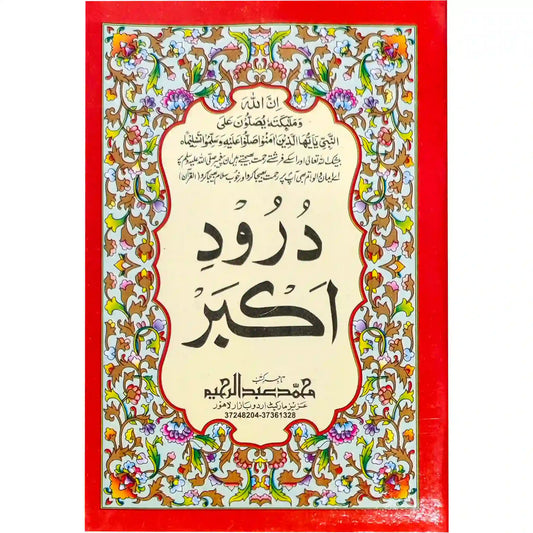 اِنَّ اللّٰهَ
وَمَلٰٓئِكَتَهٗ يُصَلُّوْنَ عَلَى
النَّبِيِّ يٰٓاَيُّهَا الَّذِيْنَ اٰمَنُوْا صَلُّوْا عَلَيْهِ وَسَلِّمُوْا تَسْلِيْمًا
بیشک اللہ تعالیٰ اور اسکے فرشتے رحمت بھیجتے ہیں ان پیغمبر صلی اللہ علیہ وسلم پر
اے ایمان والو تم بھی آپ پر رحمت بھیجا کرو اور خوب سلام بھیجا کرو (القرآن)
دُرُودِ
اَکبَر
تاجر کتب
محمد عبد الرحیم
عزیز مارکیٹ اردو بازار لاہور
37248204-37361328